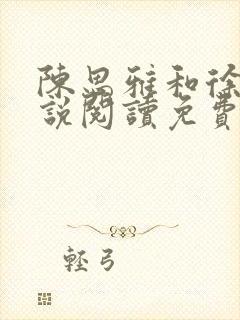 陳思雅和徐
說閱讀免費
輕弓